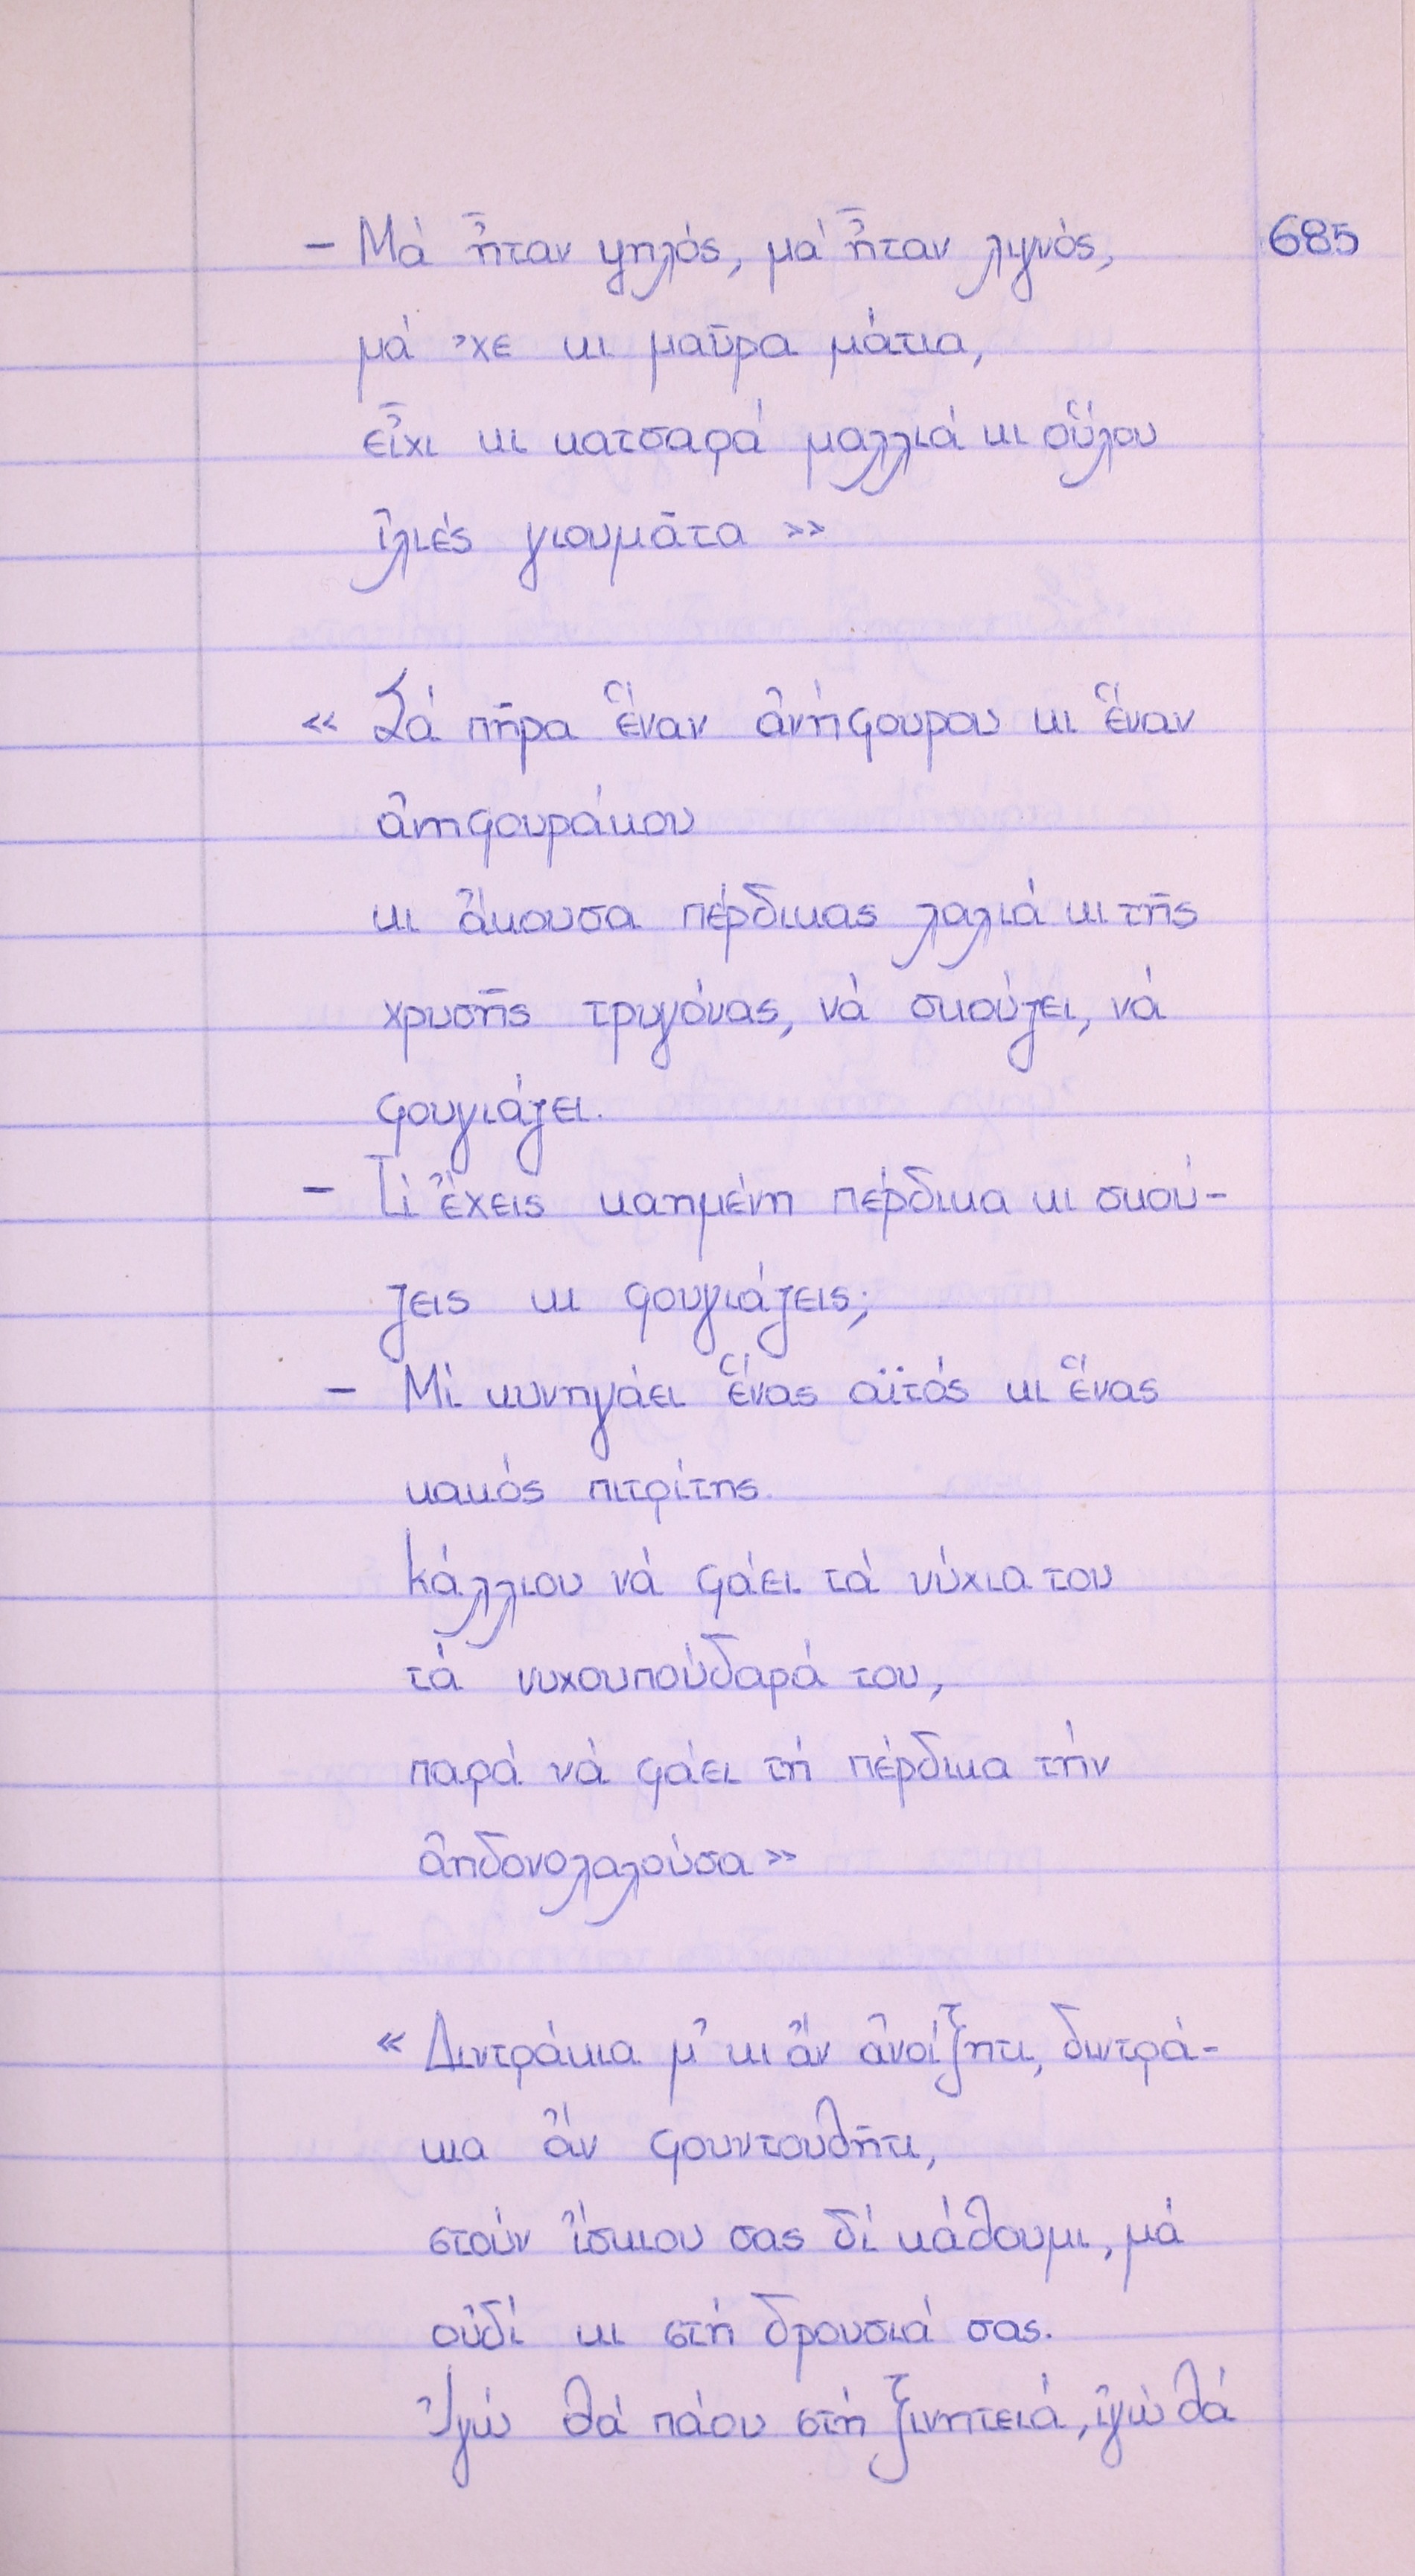 685
– Μά ἦταν ψηλός, μά ἦταν λιγνός,
μά 'χε κι μαῦρα μάτια,
εἶχι κι κατσαρά μαλλιά κι οὕλου
ἰλιές γιουμᾶτα »
« Σά πῆρα ἕναν ἀνήφουρου κι ἕναν
ἀνηφουράκου
κι ἄκουσα πέρδικας λαλιά κι τῆς
χρυσῆς τρυγόνας, νά σκούζει, νά
φουγιάζει.
– Τί ἔχεις καημένη πέρδικα κι σκού-
ζεις κι φουγιάζεις;
– Μί κυνηγάει ἕνας αϊτός κι ἕνας
κακός πιτρίτης.
Κάλλιου νά φάει τά νύχια του
τά νυχουπούδαρά του,
παρά νά φάει τή πέρδικα τήν
ἀηδονολαλούσα »
« Διντράκια μ' κι ἄν ἀνοίξητι, διντρά-
κια ἄν φουντουθῆτι,
στούν ἴσκιου σας δί κάθουμι, μά
οὐδί κι στή δρουσιά σας.
Ἰγώ θά πάου στή ξινητειά, ἰγώ θά